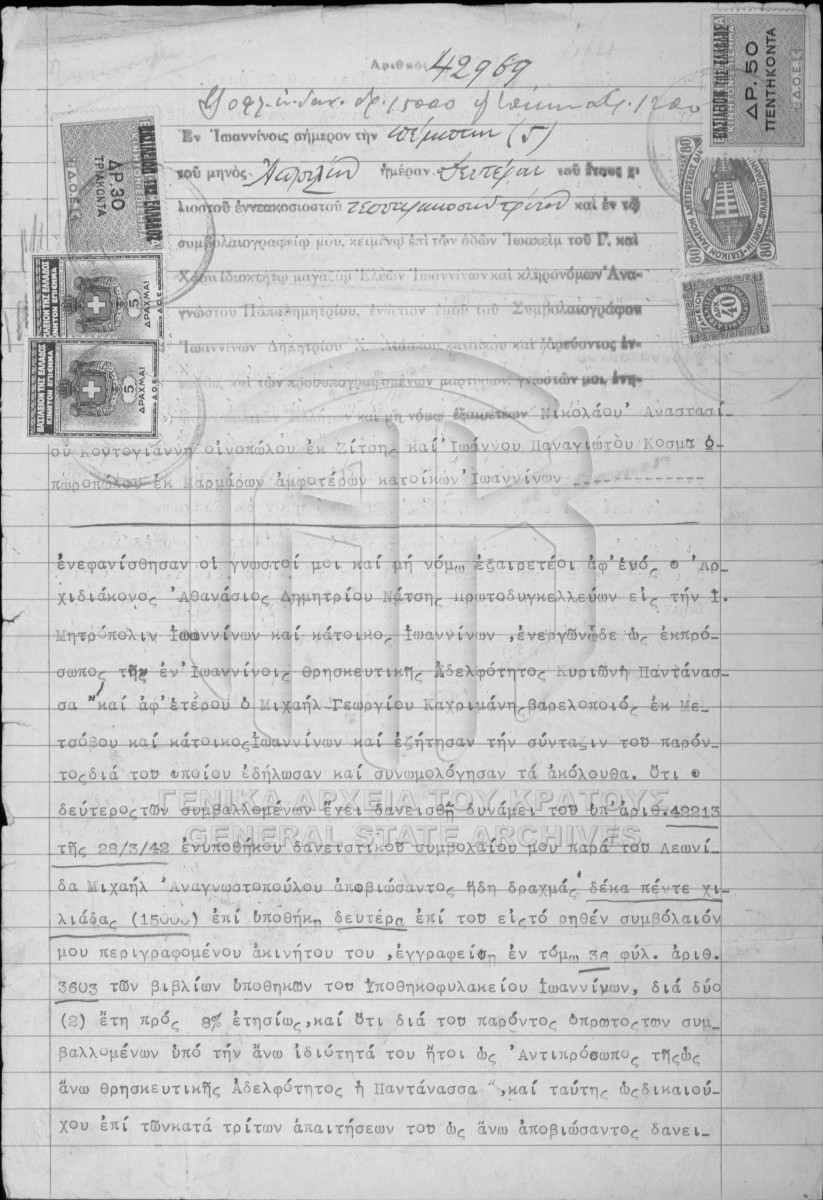 Αριθμος 42969
δρ. 15000
Ἐν Ἰωαννίνοις σήμερον τὴν πέμπτην (5)
τοῦ μηνὸς Ἀπριλίου ἡμέραν Δευτέραν τοῦ ἔτους χι
λιοστοῦ ἐννεακοσιοστοῦ τεσσαρακοστοῦ τρίτου καὶ ἐν τῷ
συμβολαιογραφείῳ μου, κειμένῳ ἐπὶ τῶν ὁδῶν Ἰωακεὶμ τοῦ Γ. καὶ
Χάου ἰδιοκτήτῳ μαγαζίῳ Ἐλεῶν Ἰωαννίνων καὶ κληρονόμων Ἀνα-
γνώστου Παπαδημητρίου, ἐνώπιον ἐμοῦ τοῦ Συμβολαιογράφου
Ἰωαννίνων Δημητρίου Χ. κατοίκου καὶ ἑδρεύοντος ἐν-
καὶ τῶν προσυπογραφομένων μαρτύρων, γνωστῶν μοι, ἐνη-
καὶ μὴ νόμῳ ἐξαιρετέων Νικολάου Αναστασί-
ου Κοντογιάννη οινοπώλου ἐκ Ζίτσης καί Ἰωάννου Παναγιώτου Κοσμα ὀ-
πωροπώλου ἐκ Μαρμάρων ἀμφοτέρων κατοίκων Ἰωαννίνων -------------
ἐνεφανίσθησαν οἱ γνωστοί μοι καί μή νόμω ἐξαιρετέοι ἀφ'ἑνός ο Ἀρ-
χιδιάκονος Ἀθανάσιος Δημητρίου Νάτσης Πρωτοδυγκελλεύων είς τήν Ι.
Μητρόπολιν Ἰωαννίνων καί κάτοικος Ἰωαννίνων ,ἐνεργῶν ὧδε ὡς ἐκπρό-
σωπος τῆς ἐν Ἰωαννίνοις θρησκευτικῆς Ἀδελφότητος Κυριῶνἡ Παντάνασ-
σα " καί ἀφ'ἑτέρου ὁ Μιχαήλ Γεωργίου Καχριμάνης βαρελοποιός ἐκ Με-
τσόβου καί κάτοικοςἸωαννίνων καί ἐζήτησαν τήν σύνταξιν του παρόν-
τοςδιά του οποίου ἐδήλωσαν καί συνωμολόγησαν τά ἀκόλουθα. Ὅτι ο
δεύτεροςτῶν συμβαλλομένων ἔχει δανεισθῆ δυνάμει του ὑπ'ἀριθ.42213
τῆς 28/3/42 ἐνυποθήκου δανειστικοῦ συμβολαίου μου παρά του Λεωνί-
δα Μιχαήλ Ἀναγνωστοπούλου ἀποβιώσαντος ἤδη δραχμάς δέκα πέντε χι-
λιάδας (15000) ἐπί ὑποθήκῃ δευτέρα ἐπί του εἰςτό ρηθέν συμβόλαιόν
μου περιγραφομένου ἀκινήτου του ,ἐγγραφείσῃ ἐν τόμω 36 φύλ. ἀριθ.
3603 τῶν βιβλίων ὑποθηκῶν του Ὑποθηκοφυλακείου Ἰωαννίνων, διά δύο
(2) ἔτη πρός 8% ἐτησίως,καί ὅτι διά του παρόντος ὁπρωτοςτων συμ-
βαλλομένων ὑπό τήν ἄνω ἰδιότητά του ἤτοι ὡς Ἀντιπρόσωπος τῆςὡς
ἄνω θρησκευτικῆς Ἀδελφότητος ἡ Παντάνασσα ",καί ταύτης ὡςδικαιού-
χου ἐπί τῶνκατά τρίτων ἀπαιτήσεων του ὡς ἄνω ἀποβιώσαντος δανει-
ΒΑΣΙΛΕΙΟΝ ΤΗΣ ΕΛΛΑΔΟΣ
ΚΙΝΗΤΟΝ ΕΠΙΣΗΜΑ
ΔΡ. 50
ΠΕΝΤΗΚΟΝΤΑ
ΒΑΣΙΛΕΙΟΝ ΤΗΣ ΕΛΛΑΔΟΣ
ΔΡ 30
ΤΡΙΑΚΟΝΤΑ
ΒΑΣΙΛΕΙΟΝ ΤΗΣ ΕΛΛΑΔΟΣ
ΚΙΝΗΤΟΝ ΕΠΙΣΗΜΑ
5
ΔΡΑΧΜΑΙ
ΒΑΣΙΛΕΙΟΝ ΤΗΣ ΕΛΛΑΔΟΣ
ΚΙΝΗΤΟΝ ΕΠΙΣΗΜΑ
5
ΔΡΑΧΜΑΙ
80
80
40
ΓΕΝΙΚΑ ΑΡΧΕΙΑ ΤΟΥ ΚΡΑΤΟΥΣ
GENERAL STATE ARCHIVES